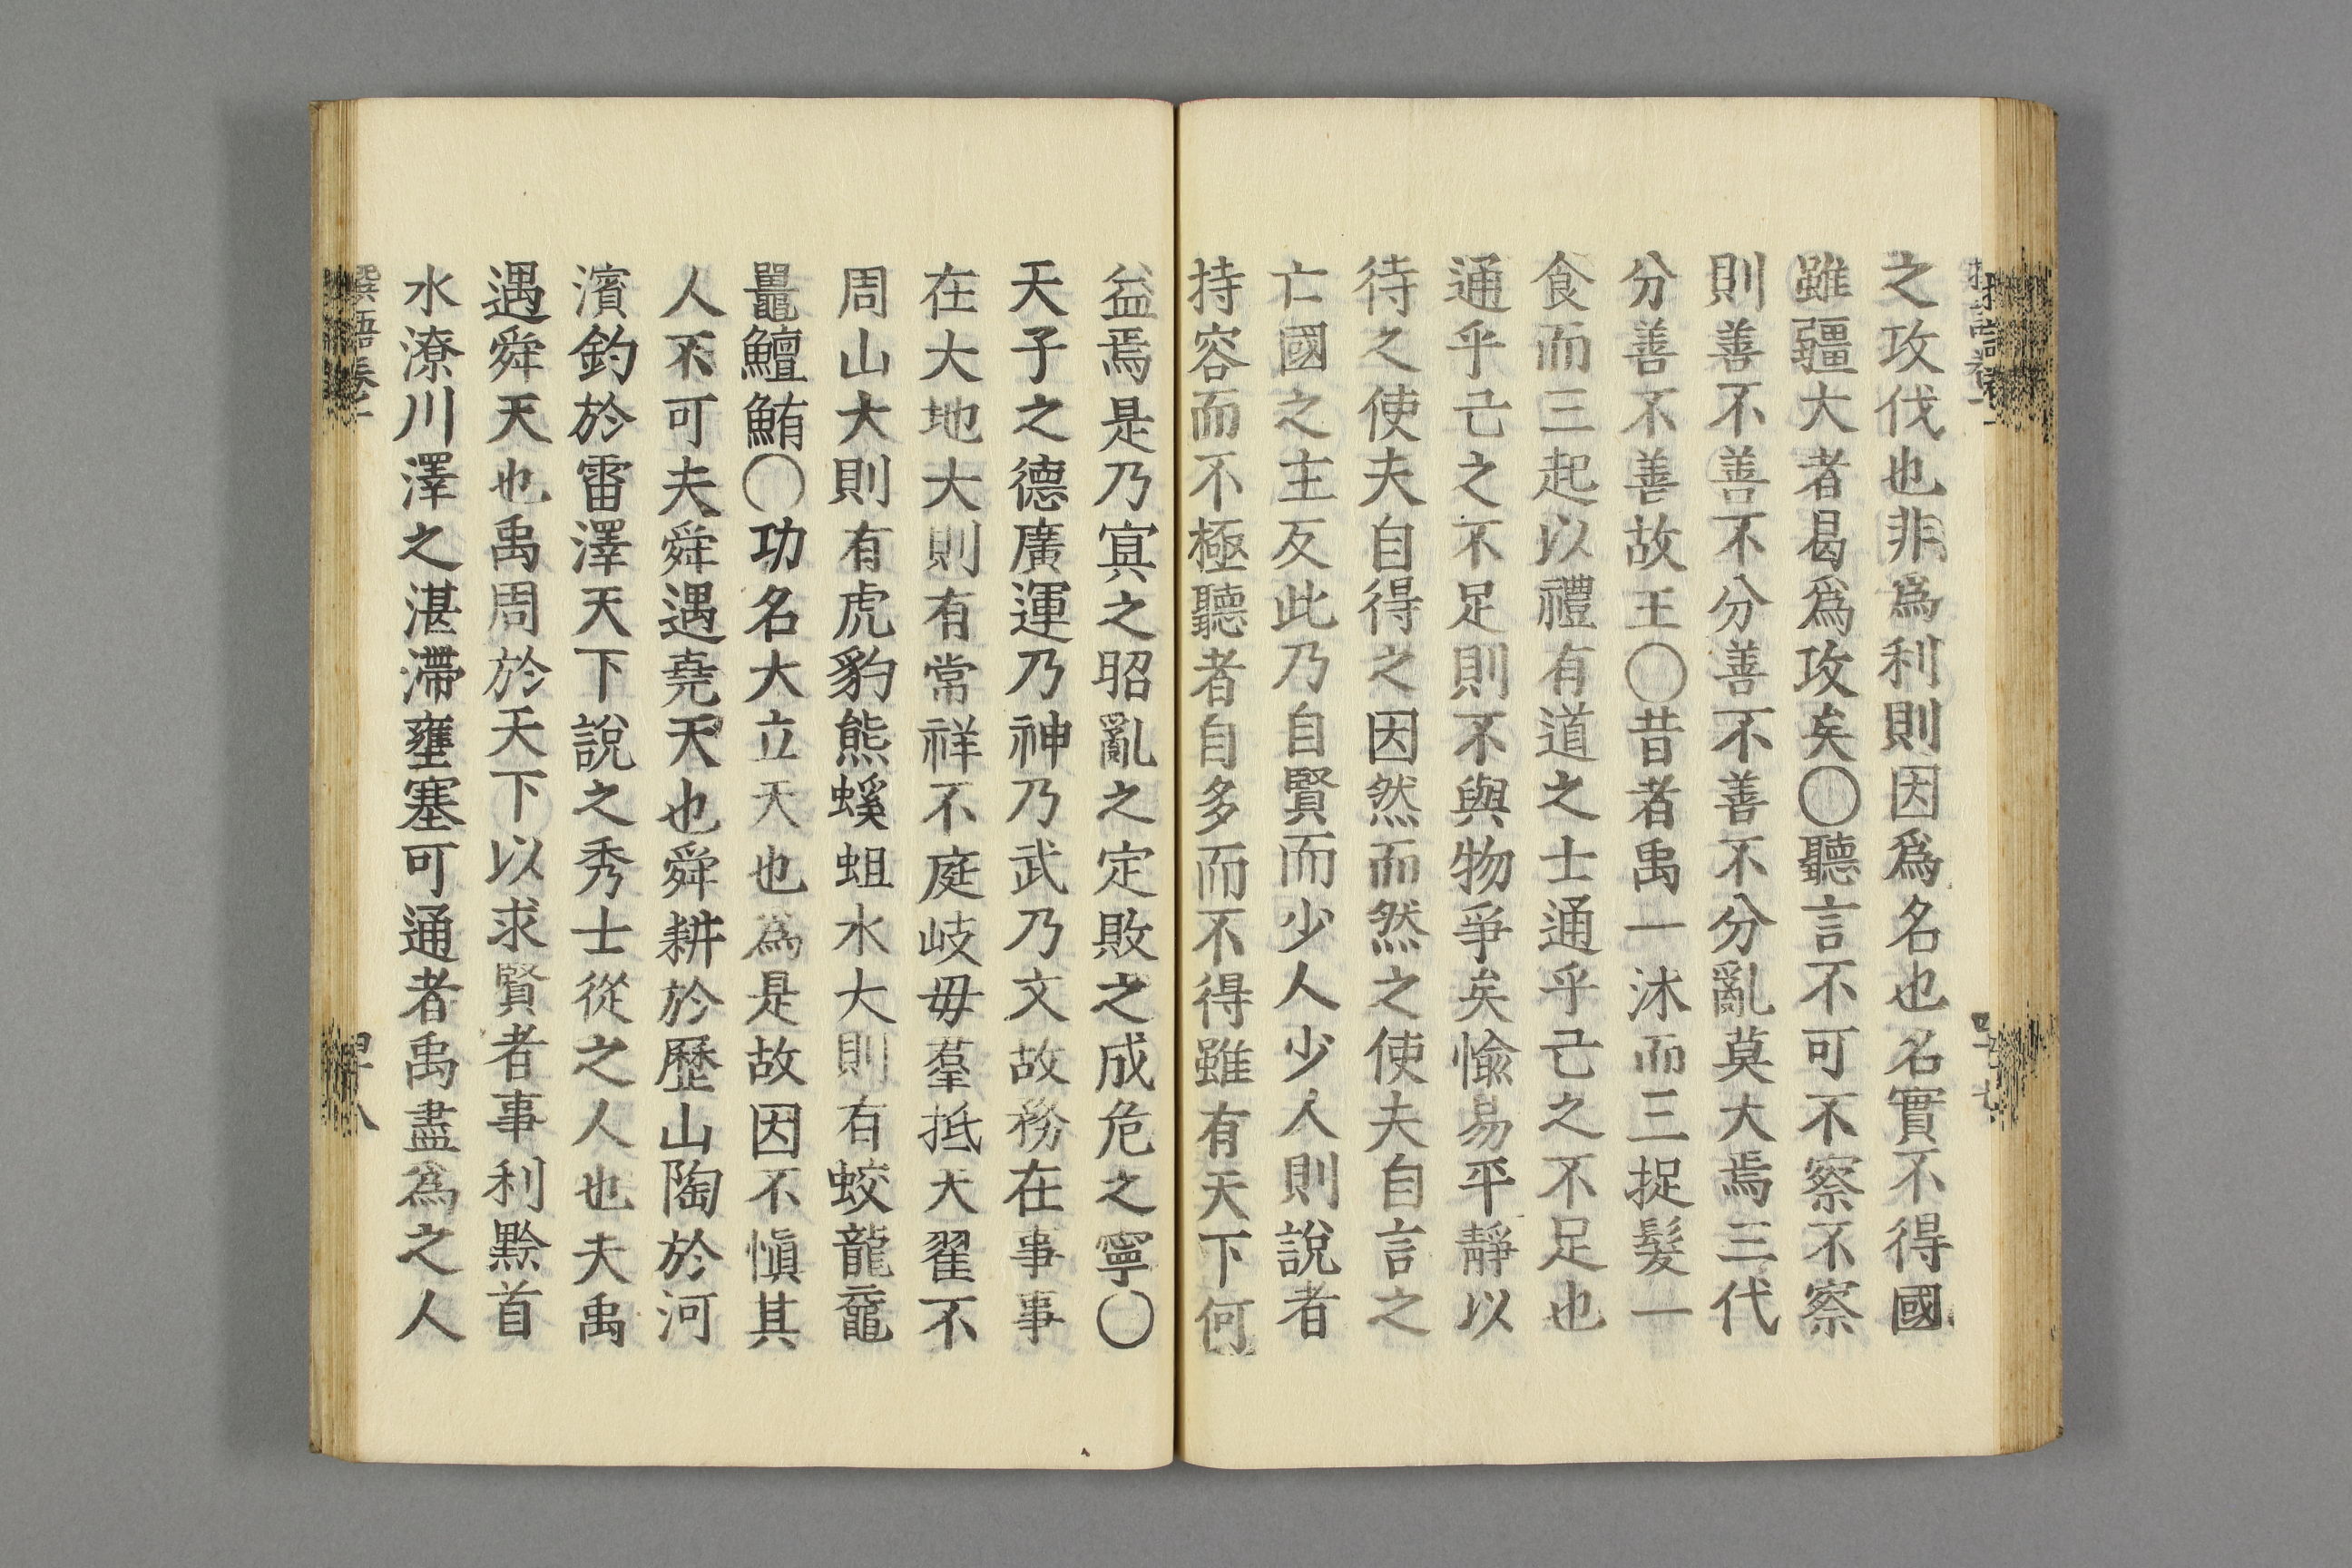 之攻伐也非爲利則因爲名也名實不得國
雖疆大者曷爲攻矣〇聽言不可不察不察
則善不善不分善不善不分亂莫大焉三代
分善不善故王〇昔者禹一沐而三捉髮一
食而三起以禮有道之士通乎己之不足也
通乎己之不足則不與物爭矣愉易平靜以
待之使夫自得之因然而然之使夫自言之
亡國之主反此乃自賢而少人少人則說者
持容而不極聽者自多而不得雖有天下何
益焉是乃冥之昭亂之定敗之成危之寧〇
天子之德廣運乃神乃武乃文故務在事事
在大地大則有常祥不庭岐毋羣抵大翟不
周山大則有虎豹熊螇蛆水大則有蛟龍黿
鼉鱣鮪〇功名大立天也爲是故因不慎其
人不可夫舜遇堯天也舜耕於歷山陶於河
濱釣於雷澤天下說之秀士從之人也夫禹
遇舜天也禹周於天下以求賢者事利黔首
水潦川澤之湛滯壅塞可通者禹盡爲之人
四十八